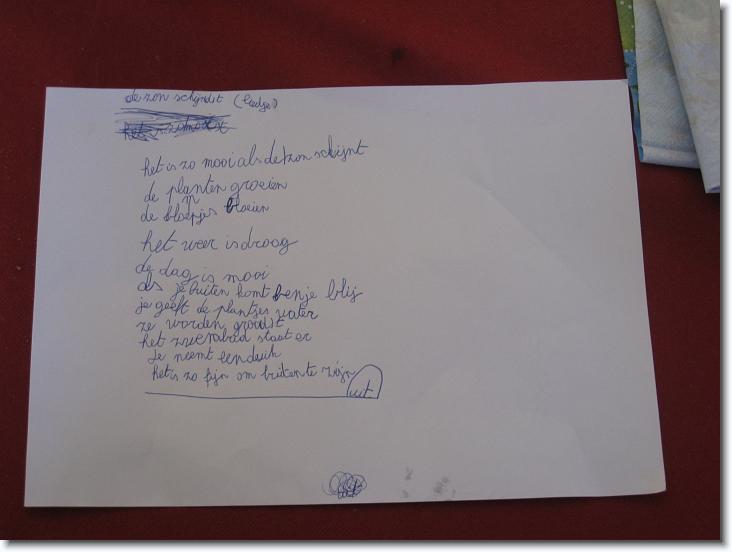 de zon schijndt (liedje)
het is zo mooi als de zon schijnt
de planten groeien
de bloepjes bloeien
het weer is droog
de dag is mooi
als je buiten komt benje blij
je geeft de plantjes water
ze worden groodst
het zwembad staat er
Je neemt een duik
het is zo fijn om buiten te zijn
uit